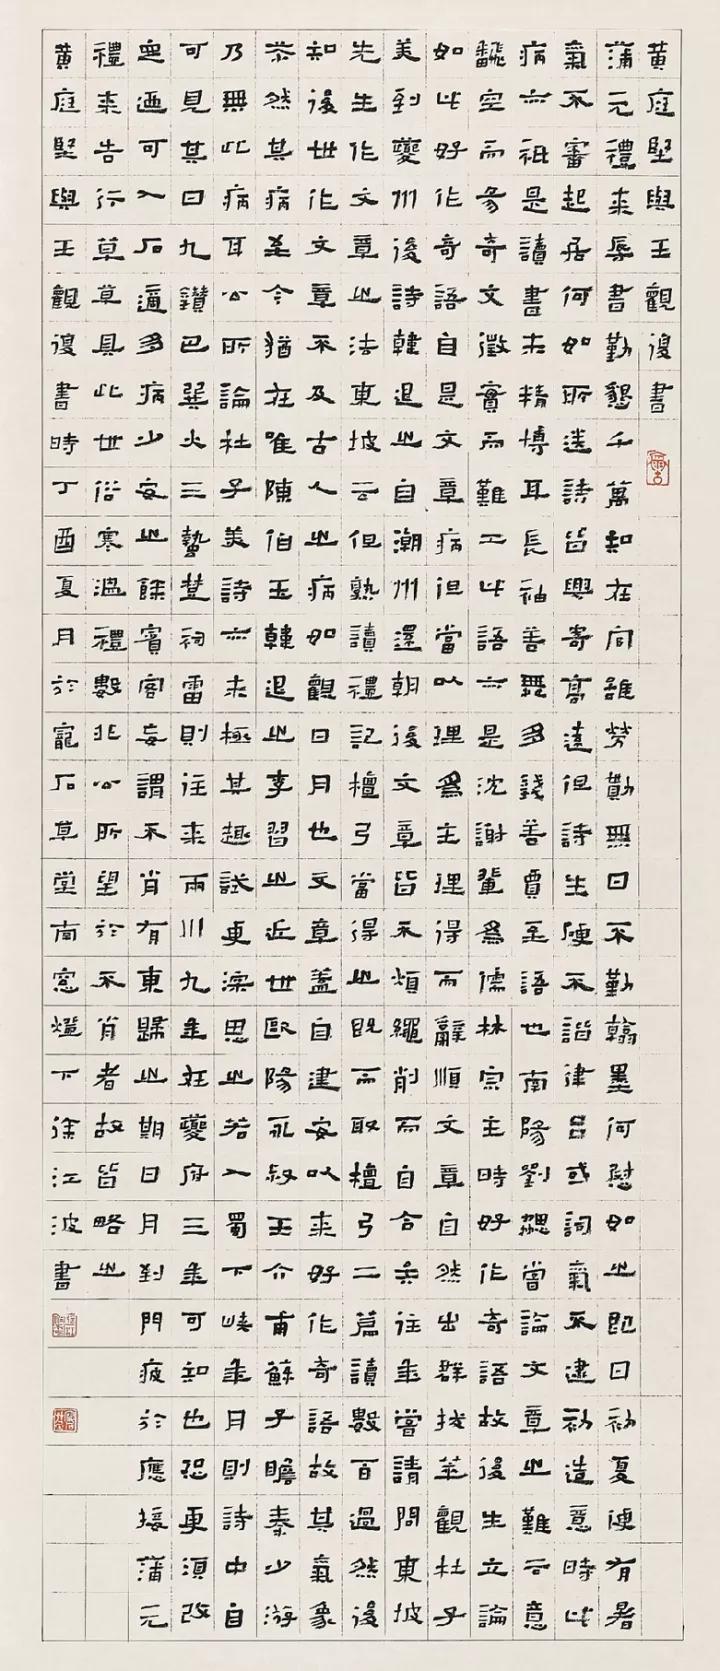 黃庭堅與王觀復書
蒲元禮來辱書勤懇千萬知在同雖勞勩無日不勤翰墨何慰如之即日初夏便有暑
氣不審起居何如所送詩皆興寄高遠但詩生硬不諧律呂或詞氣不逮初造意時此
病亦衹是讀書未精博耳長袖善舞多錢善賈至語也南陽劉勰當論文章之難云意
翻空而易奇文徵實而難工此語亦是沈謝輩為儒林宗主時好作奇語故後生立論
如此好作奇語自是文章病但當以理為主理得而辭順文章自然出群拔萃觀杜子
美到夔州後詩韓退之自潮州還朝後文章皆不煩繩削而自合矣往年嘗請問東坡
先生作文章之法東坡云但熟讀禮記檀弓當得之既而取檀弓二篇讀數百過然後
知後世作文章不及古人之病如觀日月也文章蓋自建安以來好作奇語故其氣象
苶然其病至今猶在唯陳伯玉韓退之李習之近世歐陽永叔王介甫蘇子瞻秦少游
乃無此病耳公所論杜子美詩亦未極其趣試更深思之若入蜀下峽年月則詩中自
可見其曰九鑽巴巽火三蟄楚祠雷則往來兩川九年在夔府三年可知也恐更須改
定迺可入石適多病少安之餘賓客妄謂不肖有東歸之期日月到門疲於應接蒲元
禮來告行草草具此世俗寒溫禮數非公所望於不肖者故皆略之
黃庭堅與王觀復書時丁酉夏月於寵石草堂南窓燈下徐江波書